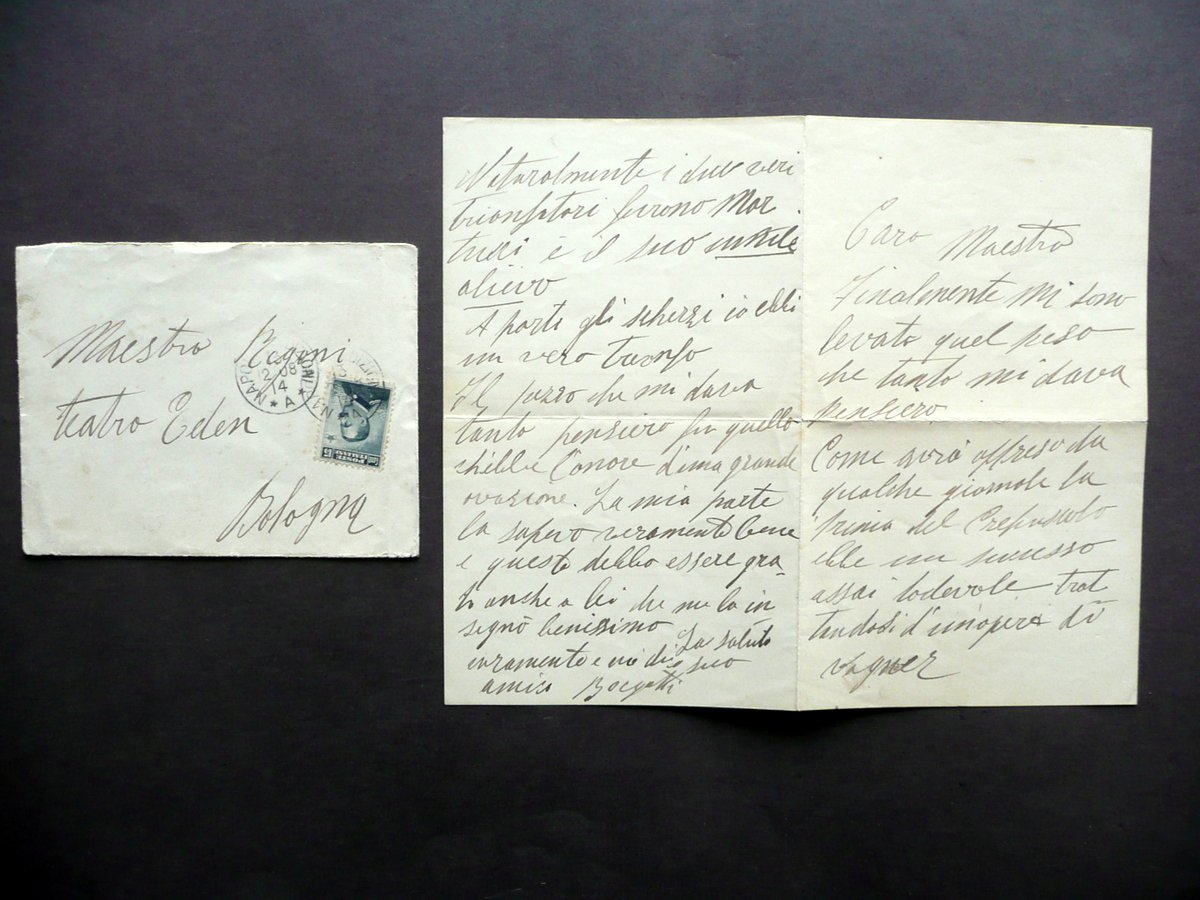 Maestro
teatro Eden
Bologna
NAPOLI
2 08
14
★ A ★
POSTE
ITALIANE
15
Caro Maestro
Finalmente mi sono
levato quel peso
che tanto mi dava
pensiero
Come avrà appreso da
qualche giornale la
prima del Crepuscolo
ebbe un successo
assai lodevole trat
tandosi d'un'opera di
Vagner
Naturalmente i due veri
trionfatori furono Mar
tucci e il suo umile
alievo
A parte gli scherzi io ebbi
un vero trionfo
Il pezzo che mi dava
tanto pensiero fu quello
ch'ebbe l'onore d'una grande
ovazione. La mia parte
la sapevo veramente bene
e questo debbo essere gra
to anche a lei che me la in
segnò benissimo
La saluto
caramente e mi dico suo
amico Borgatti